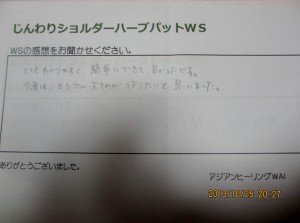 じんわりショルダーハーブパットWS
WSの感想をお聞かせください。
とてもわかりやすく、簡単にできて良かったです。
今度は、もう少し大きめが作りたいと思いました。
ありがとうございました。
アジアンヒーリングWAI
2013/10/25 20:27